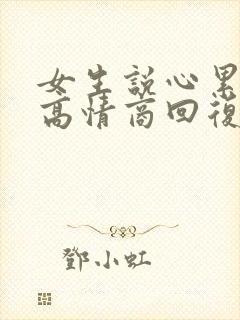 女生說心累
高情商回復
鄧小虹